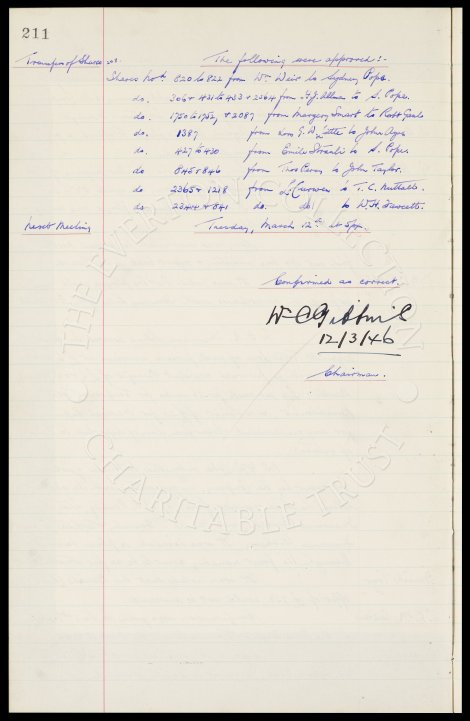 211
Transfer of Shares The following were approved:-
Shares Nos. 820 to 822 from Wm Weir to Sydney Pope.
do. 306 & 431 to 433 & 2364 from to S. Pope.
do. 1750 to 1752, & 2087 from Margery Smart to Robt
do. 1387 from to John
do. 427 to 430 from Emile to S. Pope.
do. 845 & 846 from Thos to John Taylor.
do 2365 & 1218 from Curwen to T. C. Nuttall.
do 2344 & 841 do. do to W.H. Fawcett.
Next Meeting Tuesday, March 12th at 5pm.
Confirmed as correct.
W C Gibbins
12/3/46
Chairman.
THE EVERTON COLLECTION
CHARITABLE TRUST